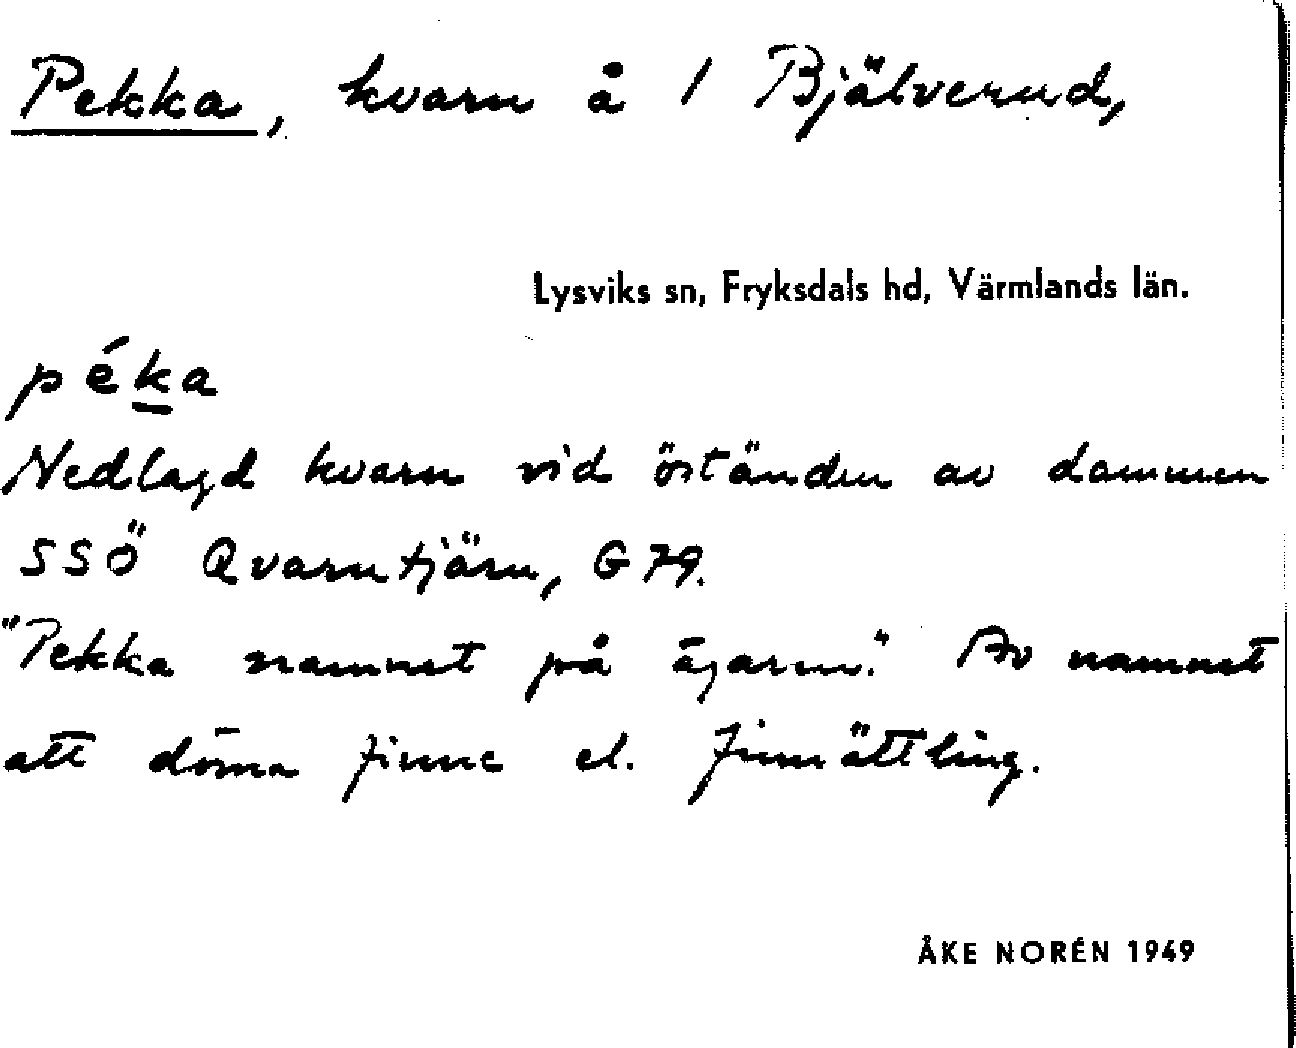 Pekka, kvarn å 1 Bjälverud,
Lysviks sn, Fryksdals hd, Värmlands län.
péka
Nedlagd kvarn vid öständen av dammen
SSÖ Qvarntjärn, G 79.
"Pekka namnet på ägaren." Av namnet
att döma finne el. finnättling.
ÅKE NORÉN 1949